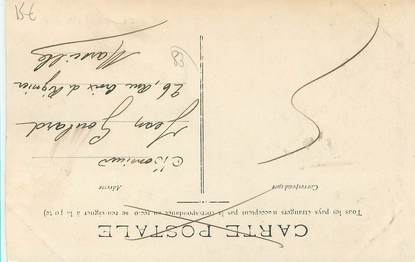 CARTE POSTALE
Tous les pays étrangers n'acceptent pas la correspondance au recto se renseigner à la poste
Correspondance
Adresse
Monsieur
Jean Goulard
26, Rue Croix de Régnier
Marseille
83